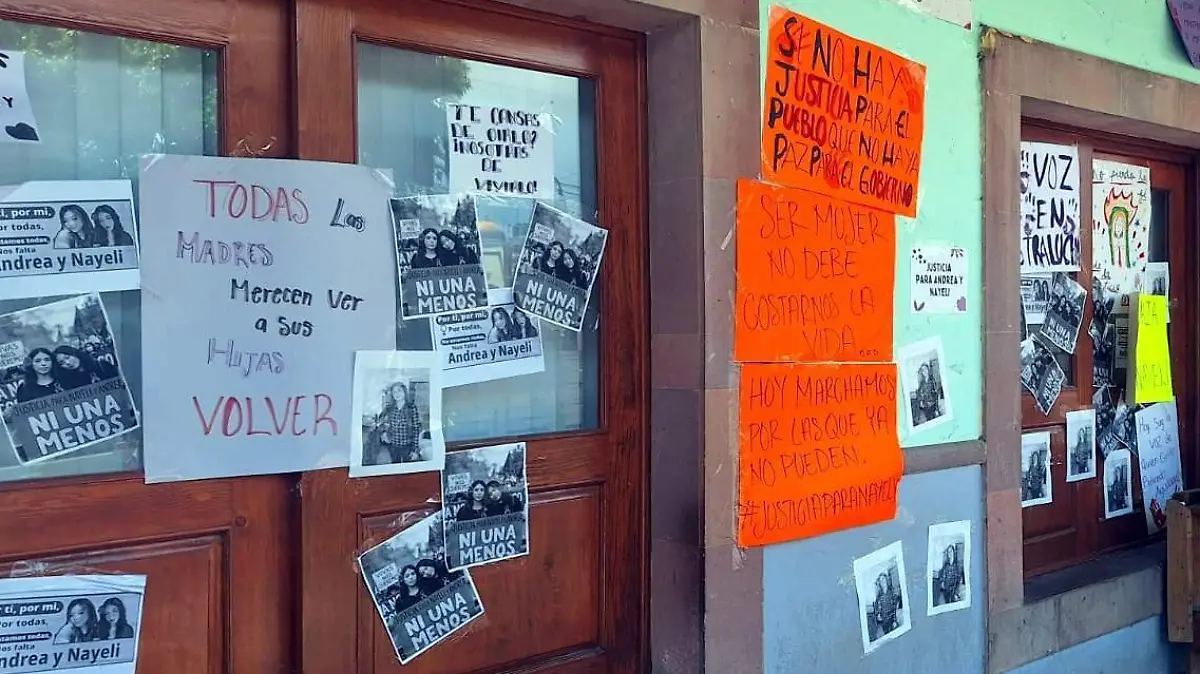 Y
tí, por mi,
Por todas,
tamos todas
Nos falta
Andrea y Nayeli
JUSTICIA PARA NAYELI Y ANDREA
NI UNA
MENOS
tí, por mi,
Por todas,
estamos todas
Nos falta
Andrea y Nayeli
TODAS Las
MADRES
Merecen Ver
a Sus
HIJAS
VOLVER
TE CANSAS
DE OIRLO?
¡NOSOTRAS
DE
VIVIRLO!
NI UNA
MENOS
NI UNA
MENOS
Por tí, por mi,
Por todas,
Nos falta
Andrea y Nayeli
NI UNA
MENOS
NI UNA
MENOS
SI NO HAY
JUSTICIA PARA EL
PUEBLO QUE NO HAYA
PAZ PARA EL GOBIERNO
SER MUJER
NO DEBE
COSTARNOS LA
VIDA...
HOY MARCHAMOS
POR LAS QUE YA
NO PUEDEN.
#JUSTICIAPARANAYELI
JUSTICIA
PARA ANDREA
Y NAYELI
VOZ
EN
TRALUCE
Hoy Soy la
Voz de